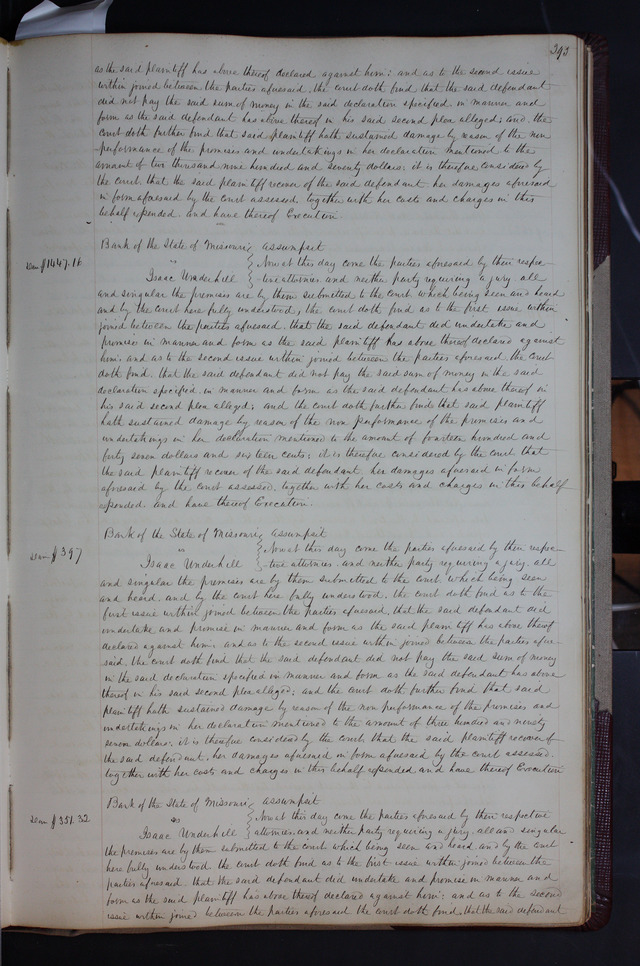 393
as the said plaintiff has above thereof declared against him; and as to the second issue
within joined between the parties aforesaid, the court doth find that the said defendant
did not pay the said sum of money in the said declaration specified in manner and
form as the said defendant has above thereof in his said second plea alleged; and the
court doth further find that said plaintiff hath sustained damage by reason of the non
performance of the promises and undertakings in her declaration mentioned to the
amount of two thousand nine hundred and seventy dollars: it is therefore considered by
the court that the said plaintiff recover of the said defendant her damages aforesaid
in form aforesaid by the court assessed together with her costs and charges in this
behalf expended and have thereof Execution
Bank of the State of Missouri assumpsit
dam $1447.16
vs
Now at this day come the parties aforesaid by their respec-
Isaac Underhill
tive attornies and neither party requiring a jury all
and singular the premises are by them submitted to the court which being seen and heard
and by the court here fully understood, the court doth find as to the first issue within
joined between the parties aforesaid, that the said defendant did undertake and
promise in manner and form as the said plaintiff has above thereof declared against
him; and as to the second issue within joined between the parties aforesaid, the court
doth find, that the said defendant did not pay the said sum of money in the said
declaration specified in manner and form as the said defendant has above thereof in
his said second plea alleged; and the court doth further find that said plaintiff
hath sustained damage by reason of the non performance of the promises and
undertakings in her declaration mentioned to the amount of fourteen hundred and
forty seven dollars and sixteen cents: it is therefore considered by the court that
the said plaintiff recover of the said defendant her damages aforesaid in form
aforesaid by the court assessed together with her costs and charges in this behalf
expended and have thereof Execution.
Bank of the State of Missouri assumpsit
dam $397
vs
Now at this day come the parties aforesaid by their respec-
Isaac Underhill
tive attornies and neither party requiring a jury, all
and singular the premises are by them submitted to the court which being seen
and heard, and by the court here fully understood, the court doth find as to the
first issue within joined between the parties aforesaid, that the said defendant did
undertake and promise in manner and form as the said plaintiff has above thereof
declared against him; and as to the second issue within joined between the parties afore-
said, the court doth find that the said defendant did not pay the said sum of money
in the said declaration specified in manner and form as the said defendant has above
thereof in his said second plea alleged; and the court doth further find that said
plaintiff hath sustained damage by reason of the non performance of the promises and
undertakings in her declaration mentioned to the amount of three hundred and ninety
seven dollars, it is therefore considered by the court that the said plaintiff recover of
the said defendant, her damages aforesaid in form aforesaid by the court assessed
together with her costs and charges in this behalf expended and have thereof Execution
Bank of the State of Missouri assumpsit
dam $351.32
vs
Now at this day come the parties aforesaid by their respective
Isaac Underhill
attornies, and neither party requiring a jury, all and singular
the premises are by them submitted to the court which being seen and heard, and by the court
here fully understood the court doth find as to the first issue within joined between the
parties aforesaid, that the said defendant did undertake and promise in manner and
form as the said plaintiff has above thereof declared against him; and as to the second
issue within joined between the parties aforesaid the court doth find, that the said defendant